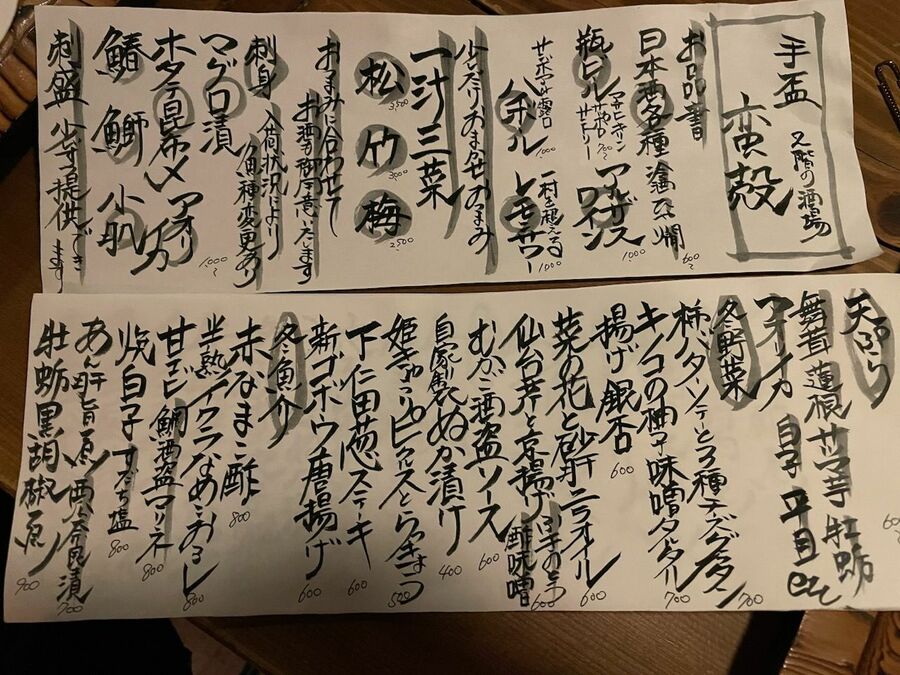 手盃
2階の酒場
蛮殻
お品書
日本酒各種 冷酒 お燗
600〜
瓶ビル
700
アルザスワイン
1000〜
ハイボル
1000
レモンサワー
1000
少しずつおまかせのつまみ
一汁三菜
松
3,500
竹
3000
梅
2500
おつまみに合わせて
お酒を御用意いたします
刺身
入荷状況により
魚種変更あり
マグロ漬
ホタテ昆布〆 アオリイカ
1,000〜
鰆 鰤 小肌
刺盛 少しずつ提供できます
天ぷら
舞茸 蓮根 サツマ芋 牡蛎
アオリイカ 白子 平目 etc
600〜
冬野菜
柿バターソテーと3種チーズグラタン
700
キノコの柚子味噌タルタル
700
揚げ銀杏
600
菜の花と砂肝ニラオイル
600
仙台芹と京揚げ
酢味噌
600
むかご酒盗ソース
600
自家製ぬか漬け
400
姫きゅうりピクルスとらっきょう
500
下仁田葱ステーキ
600
新ゴボウ唐揚げ
600
冬魚介
赤なまこ酢
800
半熟イクラなめこおろし
800
甘エビ 鯛酒盗マリネ
800
焼白子 すだち塩
800
あん肝旨煮 西瓜奈良漬
700
牡蛎黒胡椒煮
900